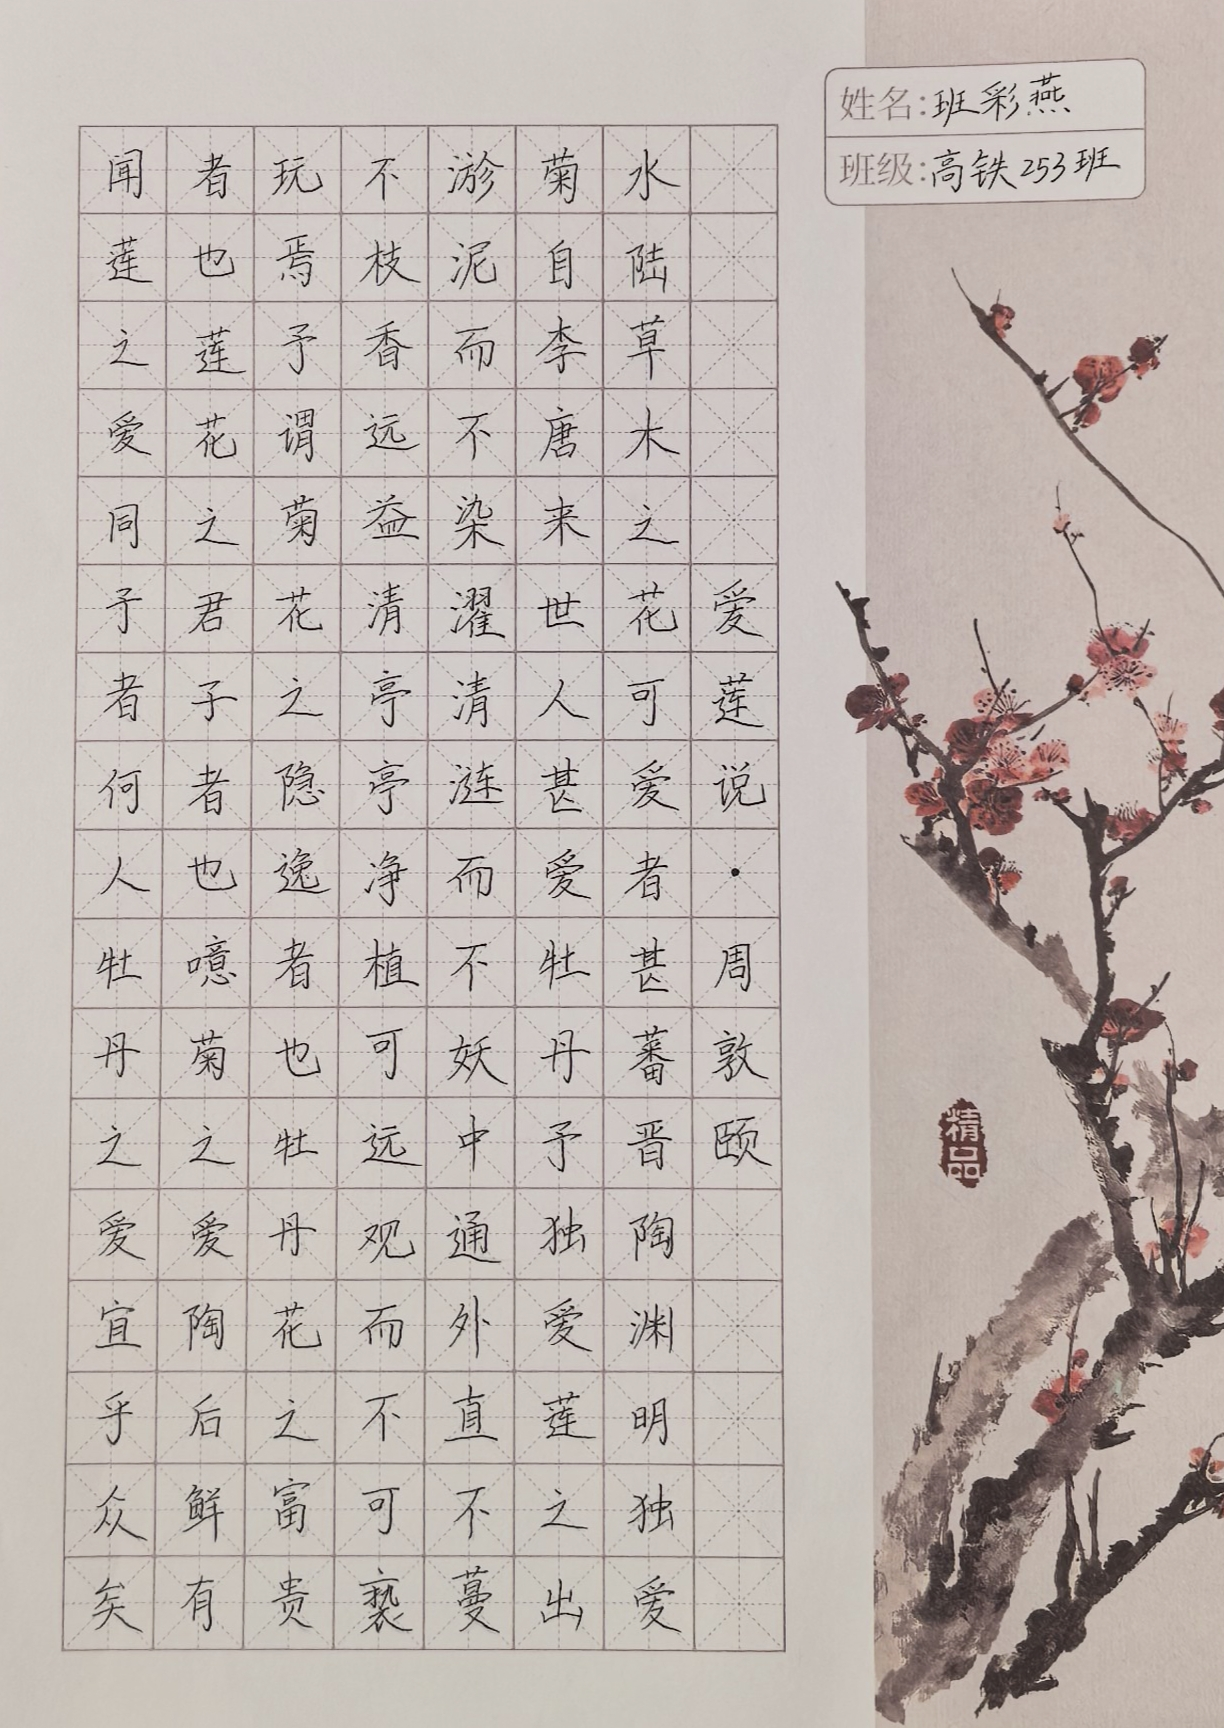 姓名:班彩燕
班级:高铁253班
爱莲说·周敦颐
水陆草木之花可爱者甚蕃晋陶渊明独爱
菊自李唐来世人甚爱牡丹予独爱莲之出
淤泥而不染濯清涟而不妖中通外直不蔓
不枝香远益清亭亭净植可远观而不可亵
玩焉予谓菊花之隐逸者也牡丹花之富贵
者也莲花之君子者也噫菊之爱陶后鲜有
闻莲之爱同予者何人牡丹之爱宜乎众矣
精品